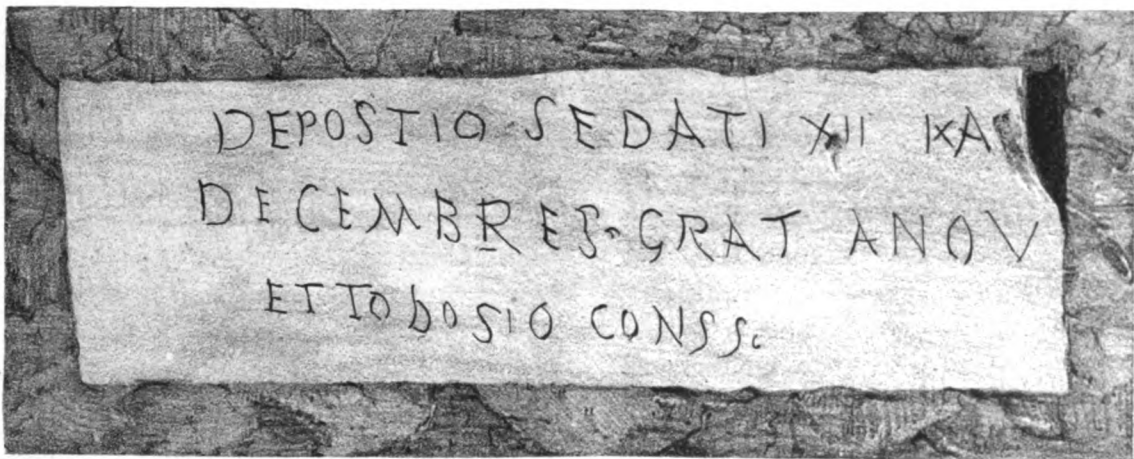 DEPOSTIO SEDATI XII KA
DECEMBRES· GRAT ANO V
ET TODOSIO CONSS.